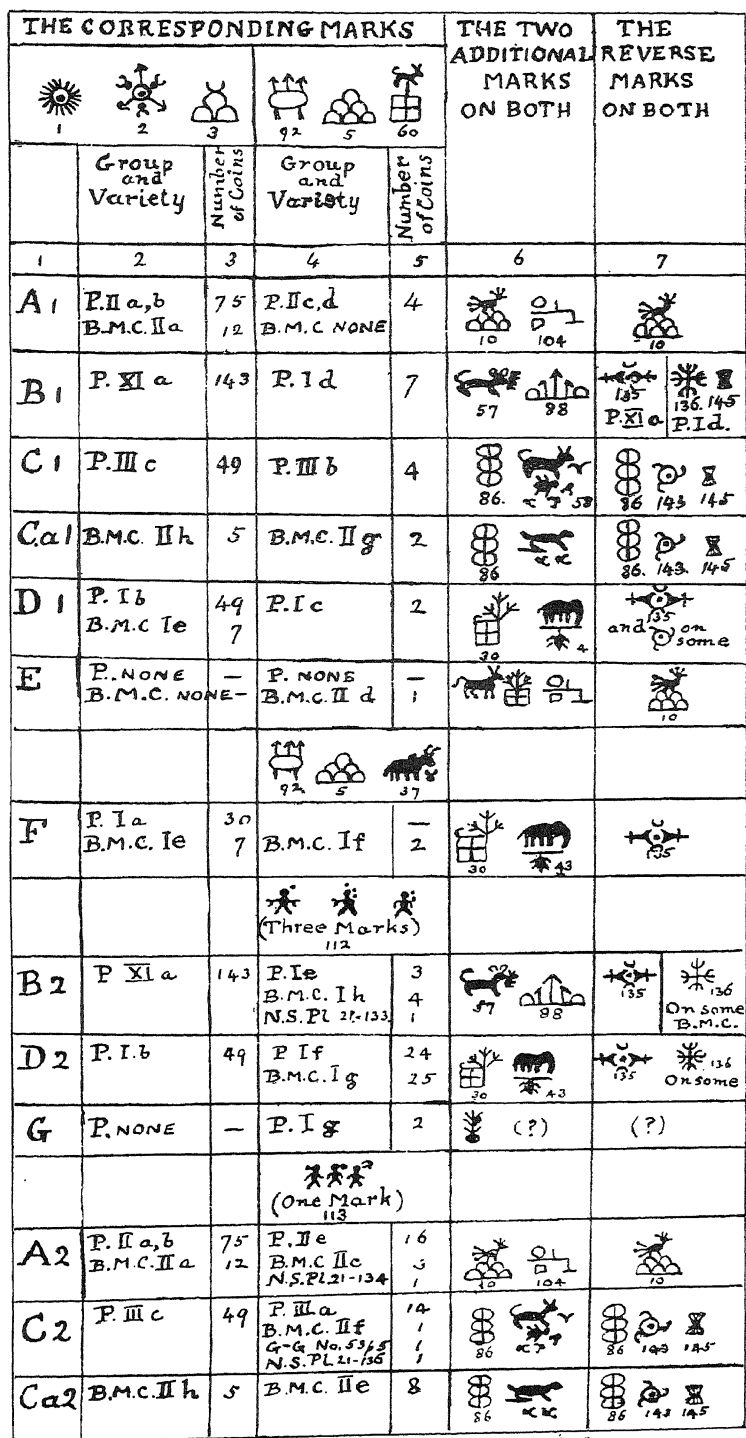 THE CORRESPONDING MARKS
THE TWO ADDITIONAL MARKS ON BOTH
THE REVERSE MARKS ON BOTH
1 2 3 92 5 60
Group and Variety
Number of Coins
Group and Variety
Number of Coins
1 2 3 4 5 6 7
A1 P.II a,b 75 P.II c,d 4
B.M.C. II a 12 B.M.C NONE
10 104 10
B1 P. XI a 143 P. I d 7
57 98 135 136. 145
P.XI a P.I d.
C1 P.III c 49 P.III b 4
86. 58 86 143 145
Ca1 B.M.C. II h 5 B.M.C. II g 2
86 86. 143. 145
D1 P. I b 49 P. I c 2
B.M.C I e 7
30 4 135
and on some
E P. NONE — P. NONE —
B.M.C. NONE — B.M.C. II d 1
10
92 5 37
F P. I a 30 —
B.M.C. I e 7 B.M.C. I f 2
30 43 135
(Three Marks)
112
B2 P XI a 143 P. I e 3
B.M.C. I h 4
N.S. Pl 21-133 1
57 98 135 136
On some
B.M.C.
D2 P. I.b 49 P I f 24
B.M.C. I g 25
30 43 135 136
On some
G P. NONE — P. I g 2 (?) (?)
(One Mark)
113
A2 P. II a,b 75 P. II e 16
B.M.C. II a 12 B.M.C II c
N.S. Pl 21-134 1
10 104 10
C2 P. III c 49 P. III a 14
B.M.C. II f 1
G-G No. 1
N.S. PL 21-136 1
86 86 143 145
Ca2 B.M.C. II h 5 B.M.C. II e 8
86 86 143 145